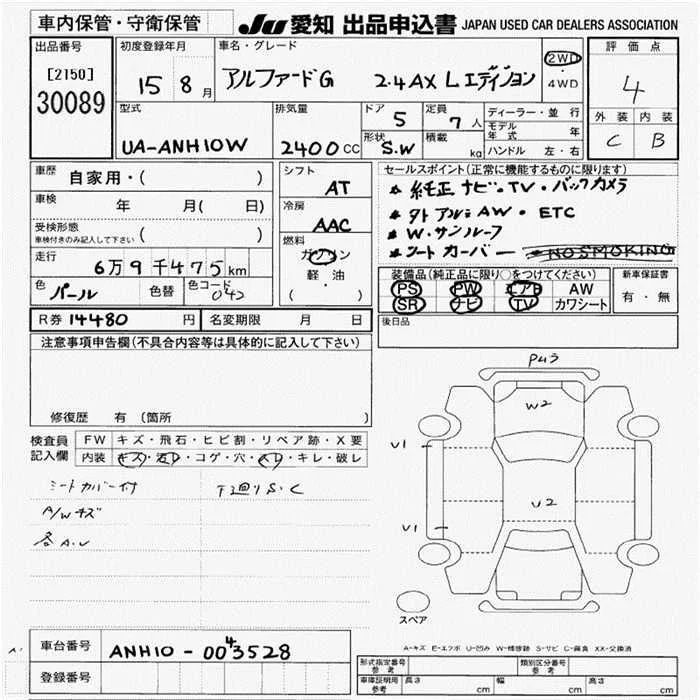 車内保管・守衛保管
JU 愛知 出品申込書 JAPAN USED CAR DEALERS ASSOCIATION
出品番号
[2150]
30089
初度登録年月
15 8 月
車名・グレード
アルファードG 2.4AX Lエディション
2WD
・
4WD
評価点
4
外装 内装
C B
型式
UA-ANH10W
排気量
2400 CC
ドア 5
形状 S.W
定員 7 人
積載 kg
ディーラー・並行
モデル年式 年
ハンドル 左・右
車歴 自家用・( )
車検 年 月( 日)
受検形態
車検付きのみ記入して下さい ( )
走行
6万9千475km
色 パール 色替 色コード 042
シフト
AT
冷房
AAC
燃料
ガソリン
軽・油
( )
セールスポイント(正常に機能するものに限ります)
★ 純正ナビ・TV・バックカメラ
★ 外アルミAW・ETC
★ W・サンルーフ
★ シートカバー ★NO SMOKING
装備品(純正品に限り○をつけてください)
PS PW エアB AW
SR ナビ TV カワシート
新車保証書
有・無
R券 14480 円 名変期限 月 日
後日品
注意事項申告欄(不具合内容等は具体的に記入して下さい)
修復歴 有 (箇所 )
検査員
記入欄
FW キズ・飛石・ヒビ割・リペア跡・X要
内装 キズ・汚レ・コゲ・穴・スレ・キレ・破レ
シートカバー付 下廻りS・C
A/Wキズ
各A・U
Pムラ
W2
U1
U2
U1
スペア
A-キズ E-エクボ U-凹み W-補修跡 S-サビ C-腐食 XX-交換済
車台番号 ANH10-0043528
登録番号
型式指定番号
参考
類別区分番号
参考
車庫証明用
参考
長さ cm 幅 cm 高さ cm